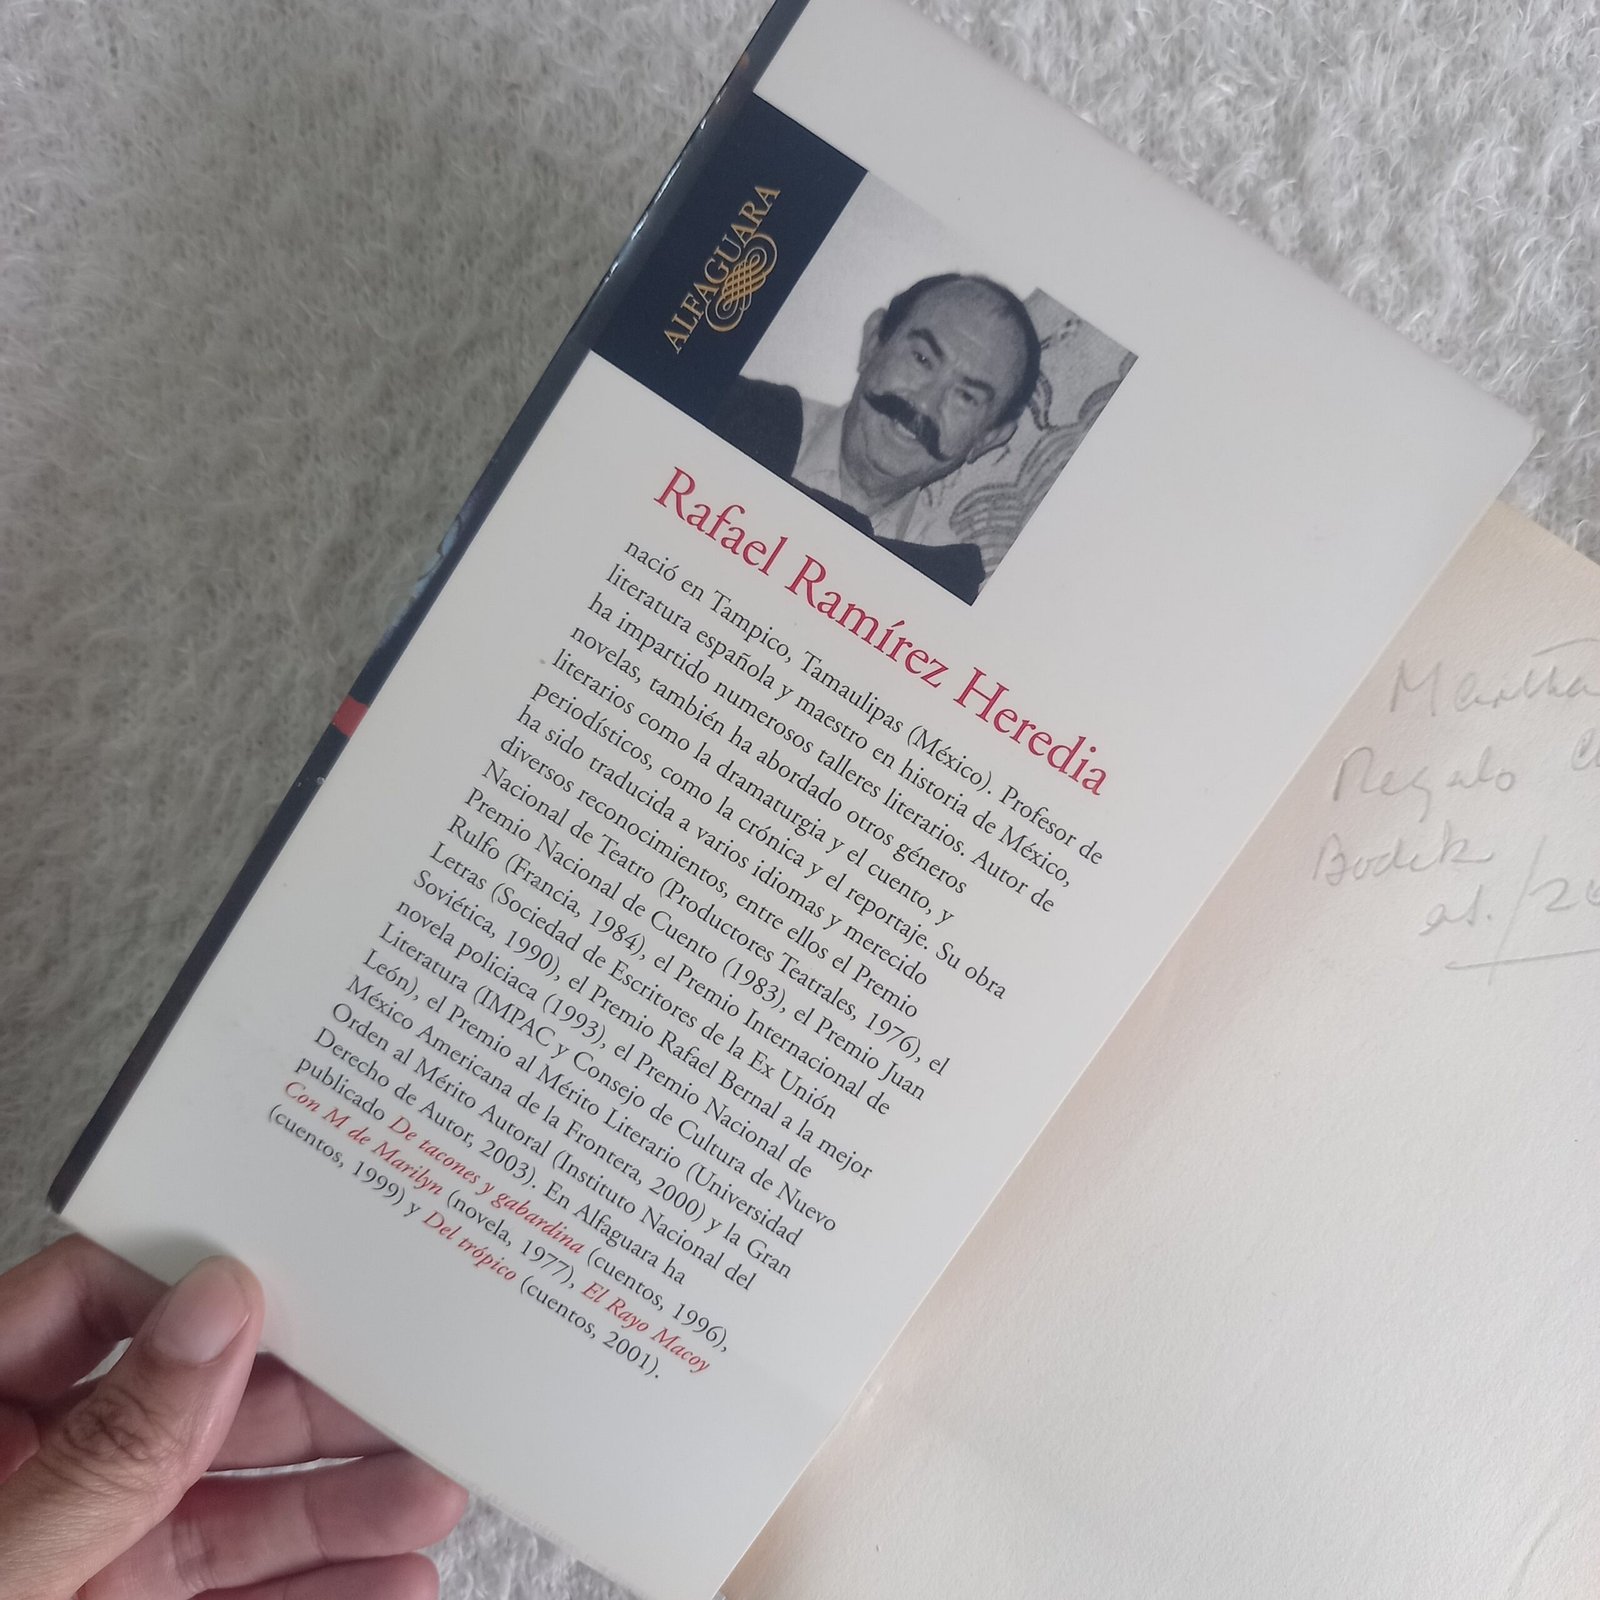 ALFAGUARA
Rafael Ramírez Heredia
nació en Tampico, Tamaulipas (México). Profesor de
literatura española y maestro en historia de México,
ha impartido numerosos talleres literarios. Autor de
novelas, también ha abordado otros géneros
literarios como la dramaturgia y el cuento, y
periodísticos, como la crónica y el reportaje. Su obra
ha sido traducida a varios idiomas y merecido
diversos reconocimientos, entre ellos el Premio
Nacional de Teatro (Productores Teatrales, 1976), el
Premio Nacional de Cuento (1983), el Premio Juan
Rulfo (Francia, 1984), el Premio Internacional de
Letras (Sociedad de Escritores de la Ex Unión
Soviética, 1990), el Premio Rafael Bernal a la mejor
novela policiaca (1993), el Premio Nacional de
Literatura (IMPAC y Consejo de Cultura de Nuevo
León), el Premio al Mérito Literario (Universidad
México Americana de la Frontera, 2000) y la Gran
Orden al Mérito Autoral (Instituto Nacional del
Derecho de Autor, 2003). En Alfaguara ha
publicado De tacones y gabardina (cuentos, 1996),
Con M de Marilyn (novela, 1977), El Rayo Macoy
(cuentos, 1999) y Del trópico (cuentos, 2001).
Martha
Regalo